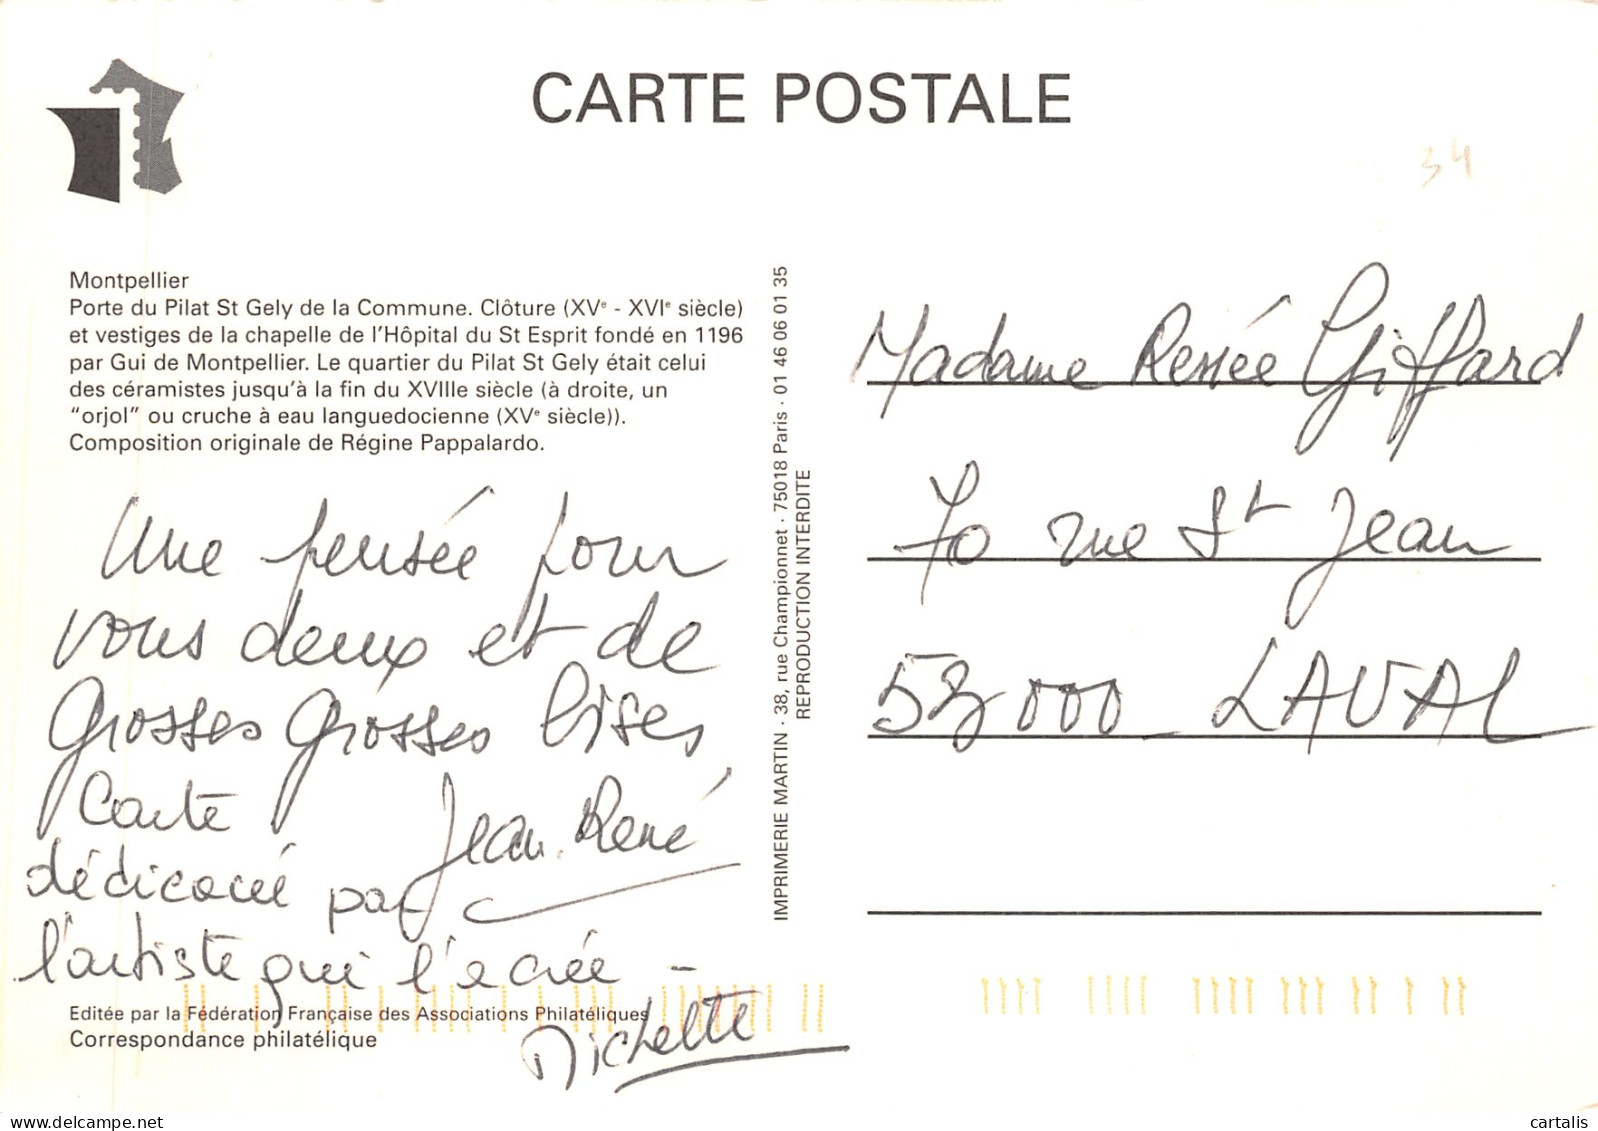 CARTE POSTALE
34
Montpellier
Porte du Pilat St Gely de la Commune. Clôture (XVe - XVIe siècle)
et vestiges de la chapelle de l'Hôpital du St Esprit fondé en 1196
par Gui de Montpellier. Le quartier du Pilat St Gely était celui
des céramistes jusqu'à la fin du XVIIIe siècle (à droite, un
"orjol" ou cruche à eau languedocienne (XVe siècle)).
Composition originale de Régine Pappalardo.
Une pensée pour
vous deux et de
grosses grosses bises
Jean. René
Carte
dédicacée par
l'artiste qui l'a créée -
Michette
Editée par la Fédération Française des Associations Philatéliques
Correspondance philatélique
IMPRIMERIE MARTIN · 38, rue Championnet · 75018 Paris · 01 46 06 01 35
REPRODUCTION INTERDITE
Madame Renée Giffard
70 rue St Jean
53000 - LAVAL
cartalis